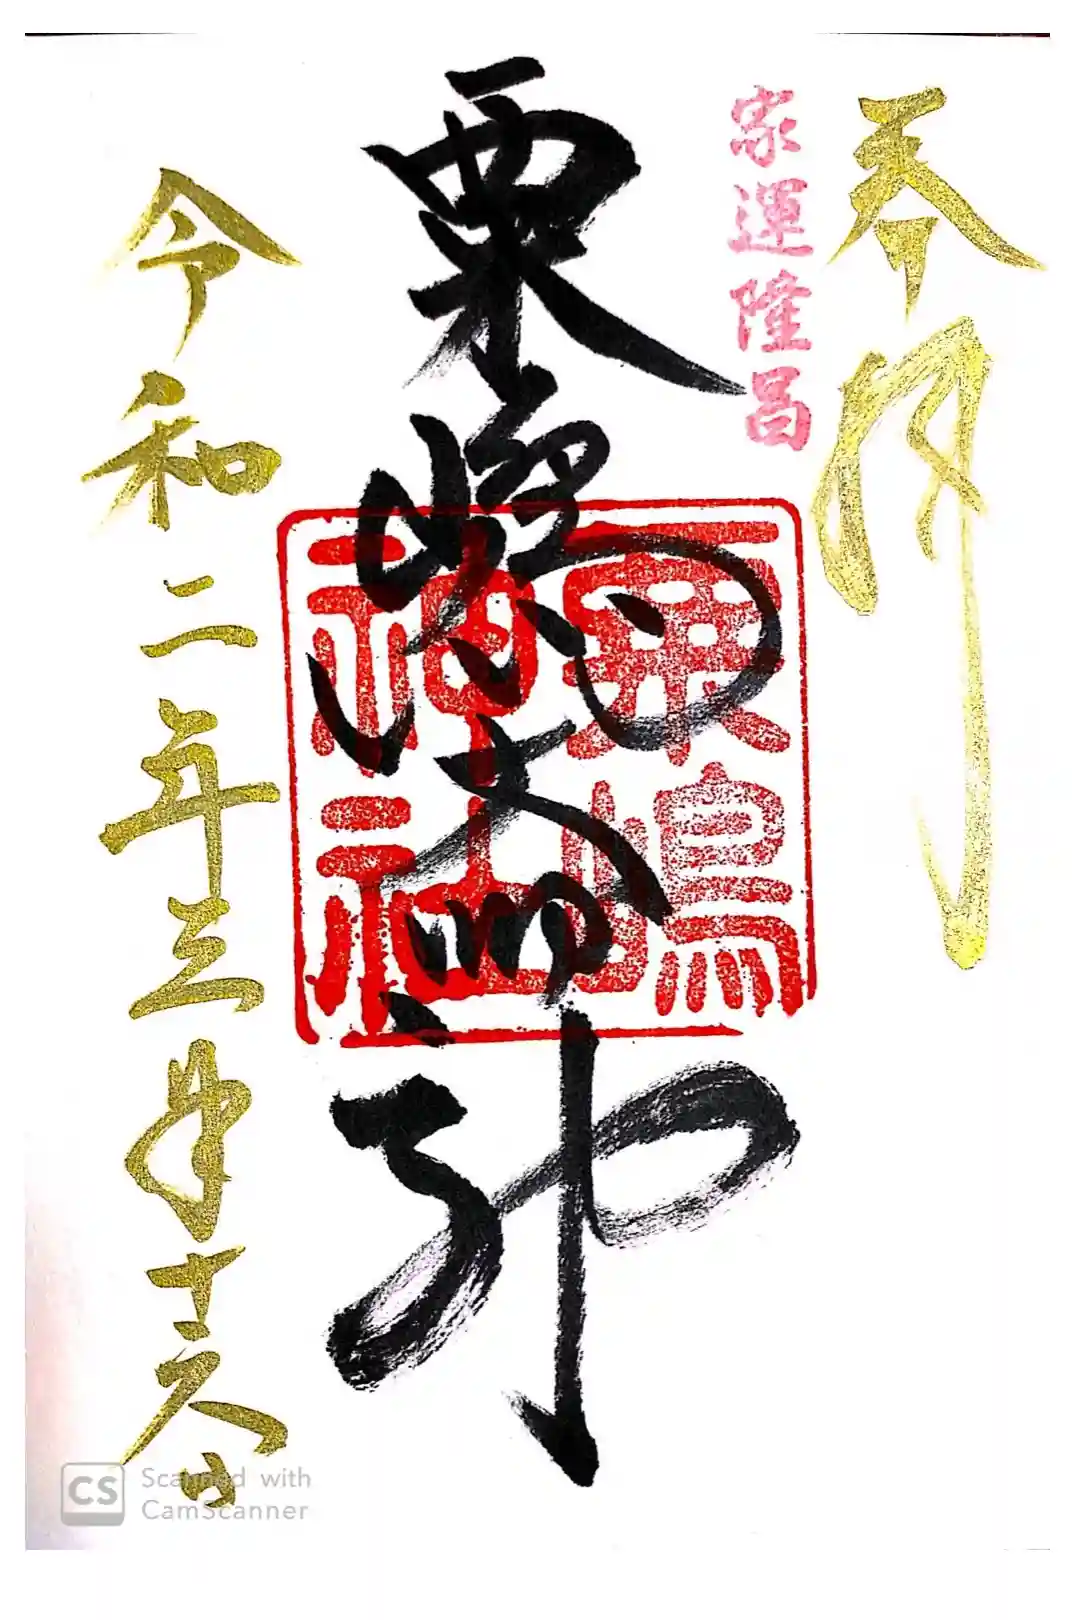 奉拝
家運隆昌
粟嶋大明神
粟嶋
神社
令和二年三月十六日
CS Scanned with
CamScanner